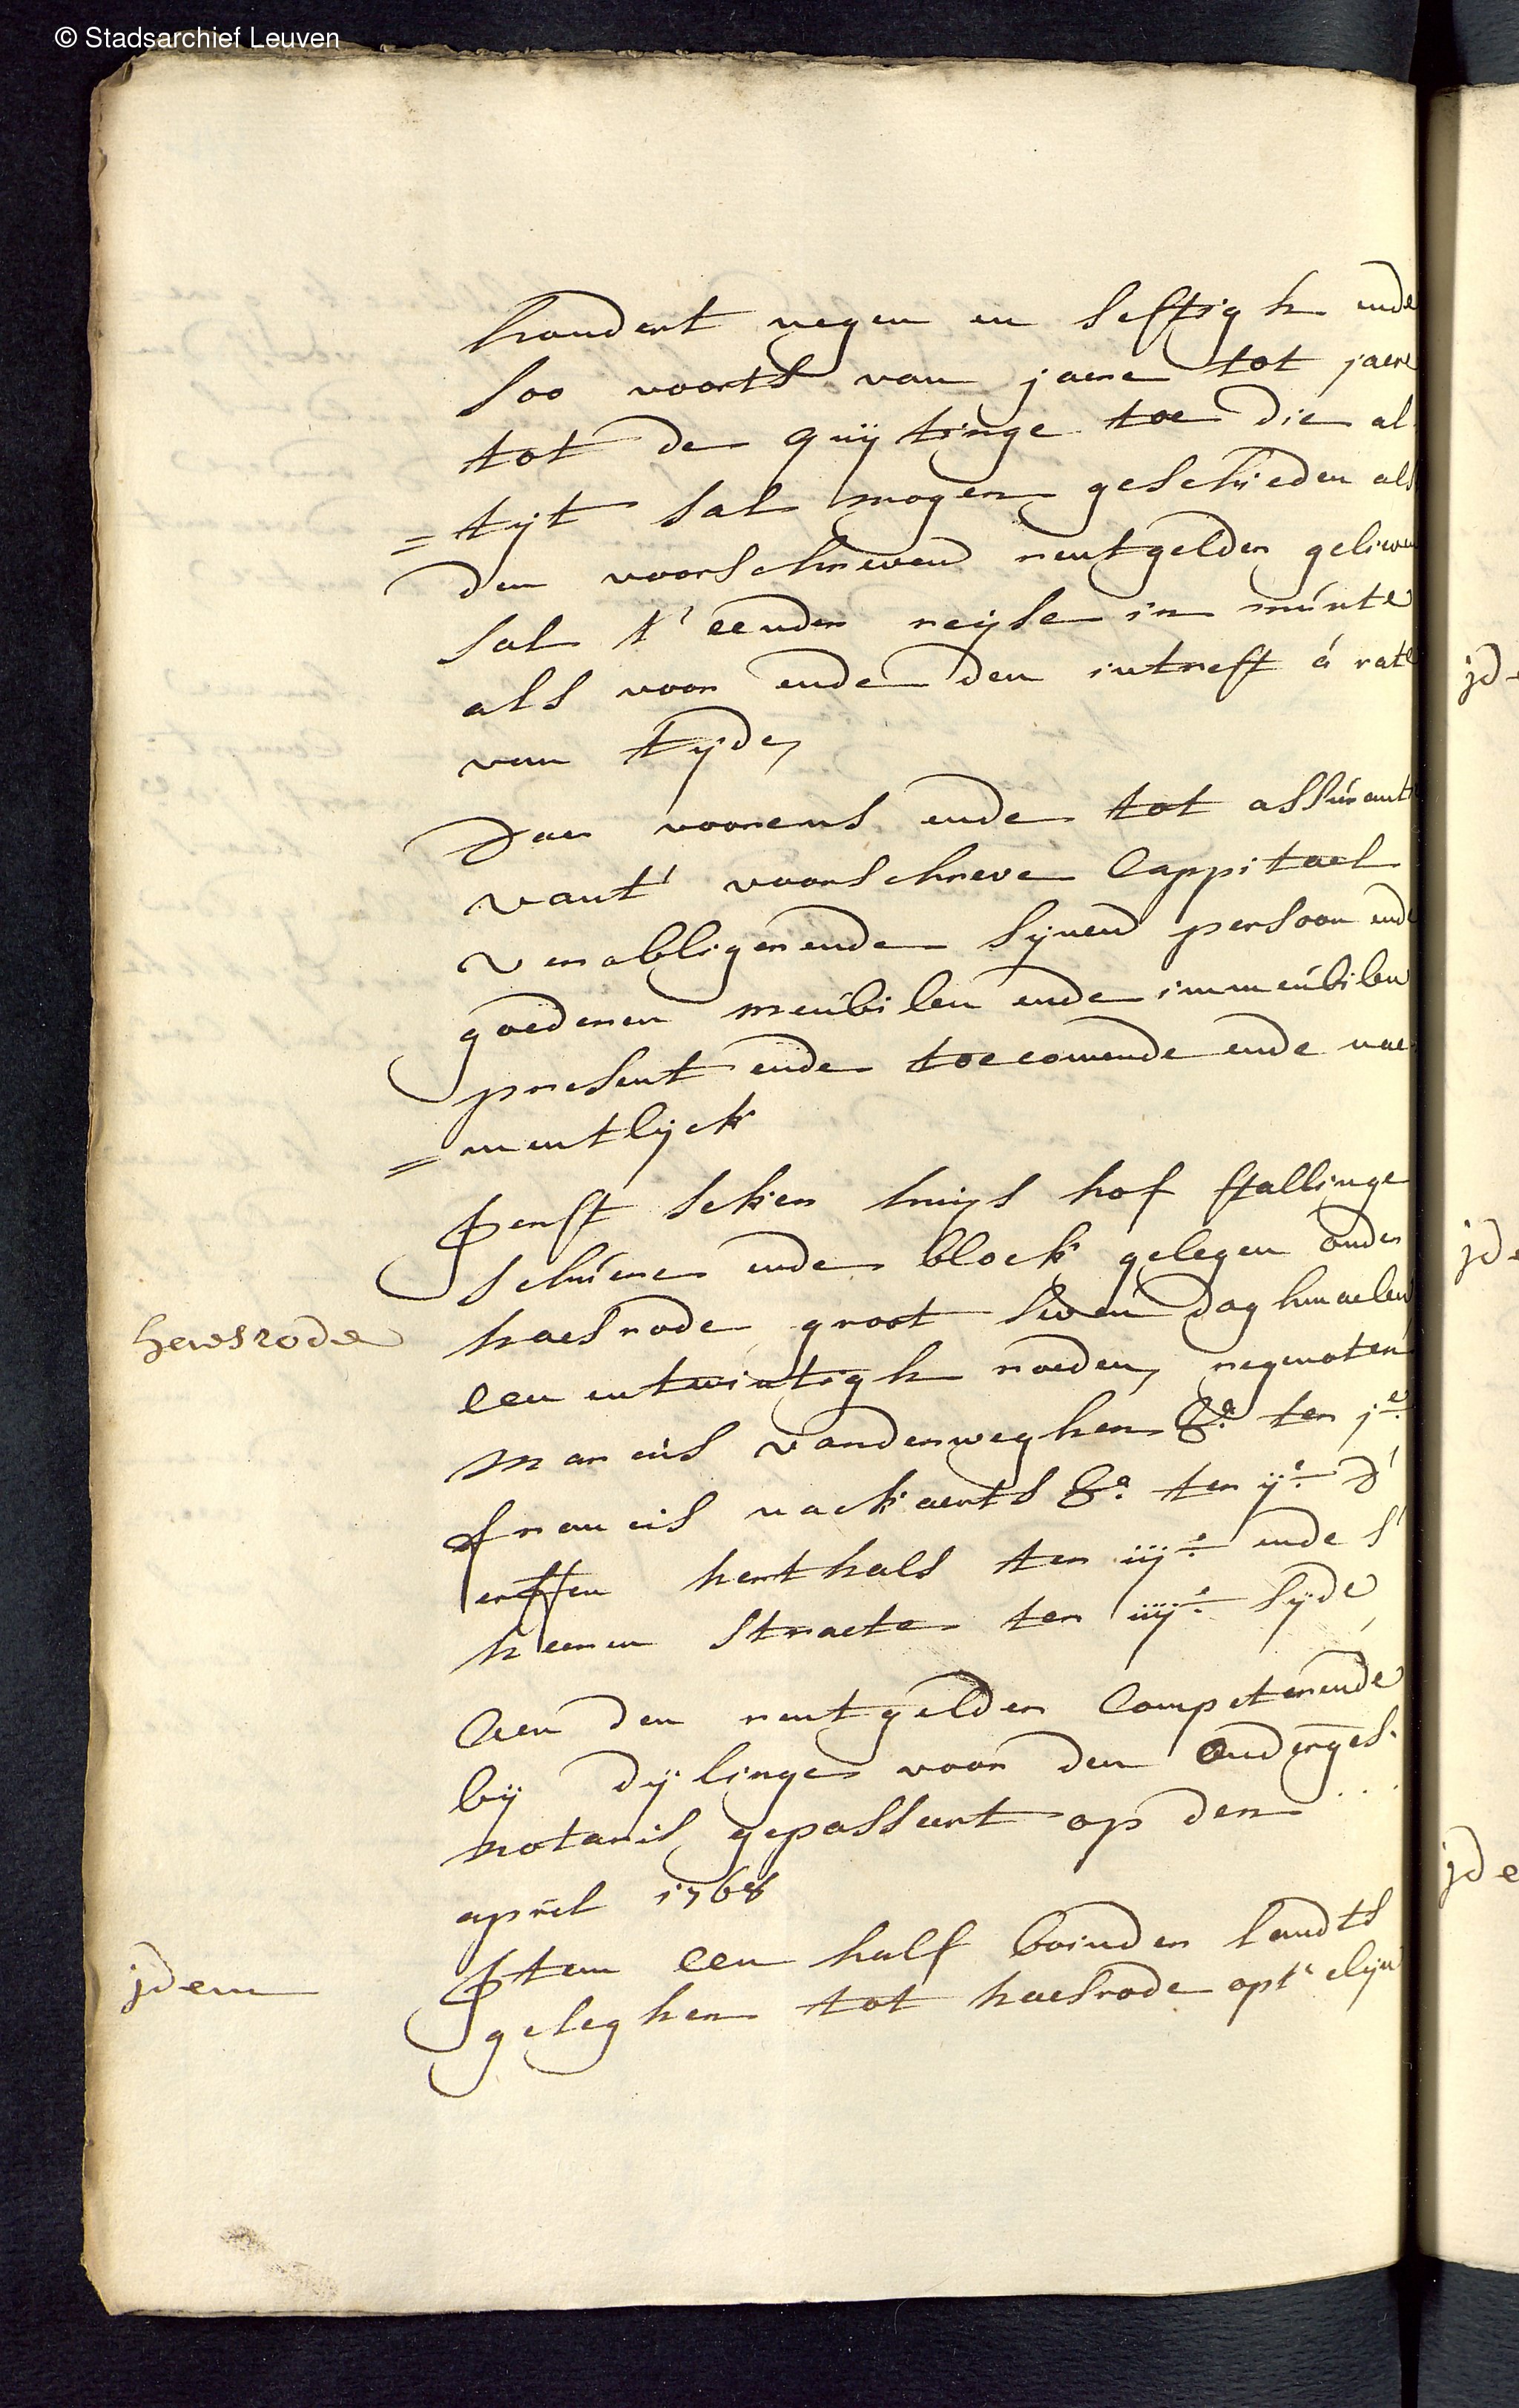 © Stadsarchief Leuven
hondert negen en sestigh ende
soo voorts van jaere tot jaere
tot de quytinge toe die al-
=tyt sal mogen geschieden als
den voorschreven rentgelder gelieven
sal t'eender reyse in munte
als voor ende den intrest á rate
van tyde,
Daer voorens ende tot assurantie
vant' voorschreve Cappitael
verobligerende synen persoon ende
goederen meubilen ende immeubilen
present ende toecomende ende nae-
=mentlyck
Ierst seker huys hof stallinge
schuere ende block gelegen onder
haesrode groot seven daghmaelen
eenentwintigh roeden, regenoten
marcus vanderweghen &a ter je
francis nackaerts &a ter ije d'
erffen herthals ter iije ende s'
heeren straete ter iiije syde,
Aen den rentgelder Competerende
by dylinge voor den onderges.
notaris gepasseert op den ...
april 1768
Item een half boinder landts
geleghen tot haesrode opt' clyn
hewsrode
jdem
jde
jde
jde